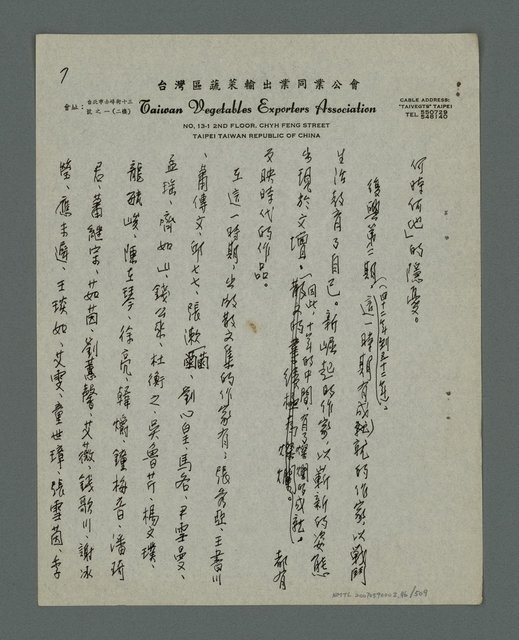 7
台灣區蔬菜輸出業同業公會
會址：台北市赤峰街十三號之一（二樓）
Taiwan Vegetables Exporters Association
NO, 13-1 2ND FLOOR, CHYH FENG STREET
TAIPEI TAIWAN REPUBLIC OF CHINA
CABLE ADDRESS:
"TAIVEGTS" TAIPEI
TEL 550729
546140
何時何地」的隱憂。
復興第二期，（四十二年到五十一年）。這一時期有成就的作家，以戰鬥
生活教育了自己。新崛起的作家，以嶄新的姿態
出現於文壇。因此，十年的中間有了燦爛的成就。都有
反映時代的作品。
在這一時期，出版散文集的作家有：張秀亞、王書川
、蕭傳文、邱七七、張漱菡、劉心皇、馬各、尹雪曼、
孟瑤、齊如山、錢公來、杜衡之、吳魯芹、楊文璞、
龍毓峻、陳立琴、徐亮、鍾梅音、潘琦
君、蕭繼宗、茹茵、劉蕙馨、艾薇、錢歌川、謝冰
瑩、應未遲、王琰如、艾雯、童世璋、張雪茵、李
NMTL 20070590002.46/509